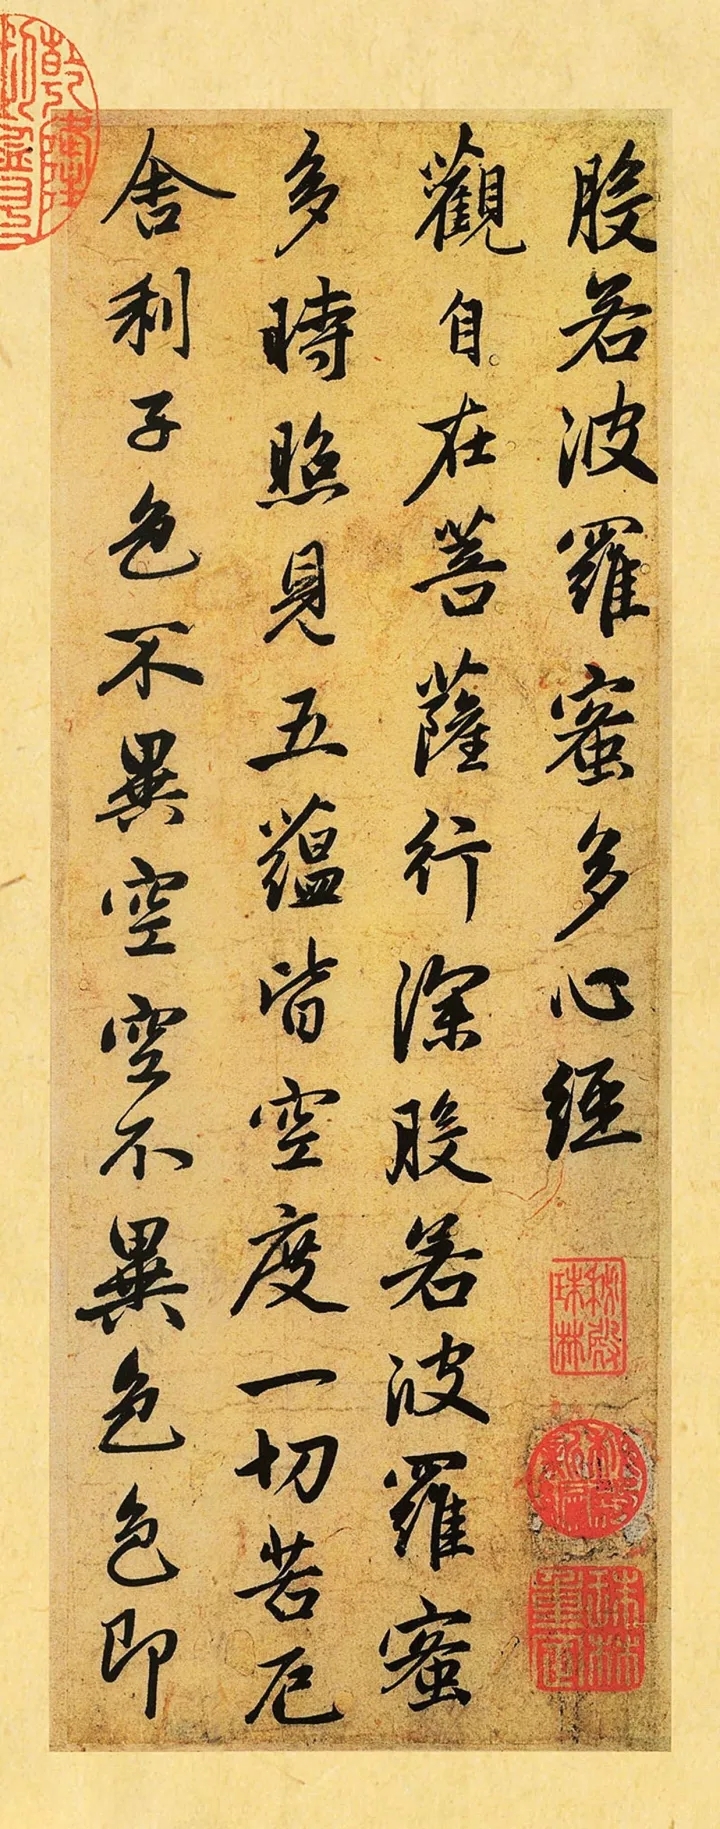 般若波羅蜜多心經
觀自在菩薩行深般若波羅蜜
多時照見五蘊皆空度一切苦厄
舍利子色不異空空不異色色即
秘殿珠林
珠林重定
乾隆